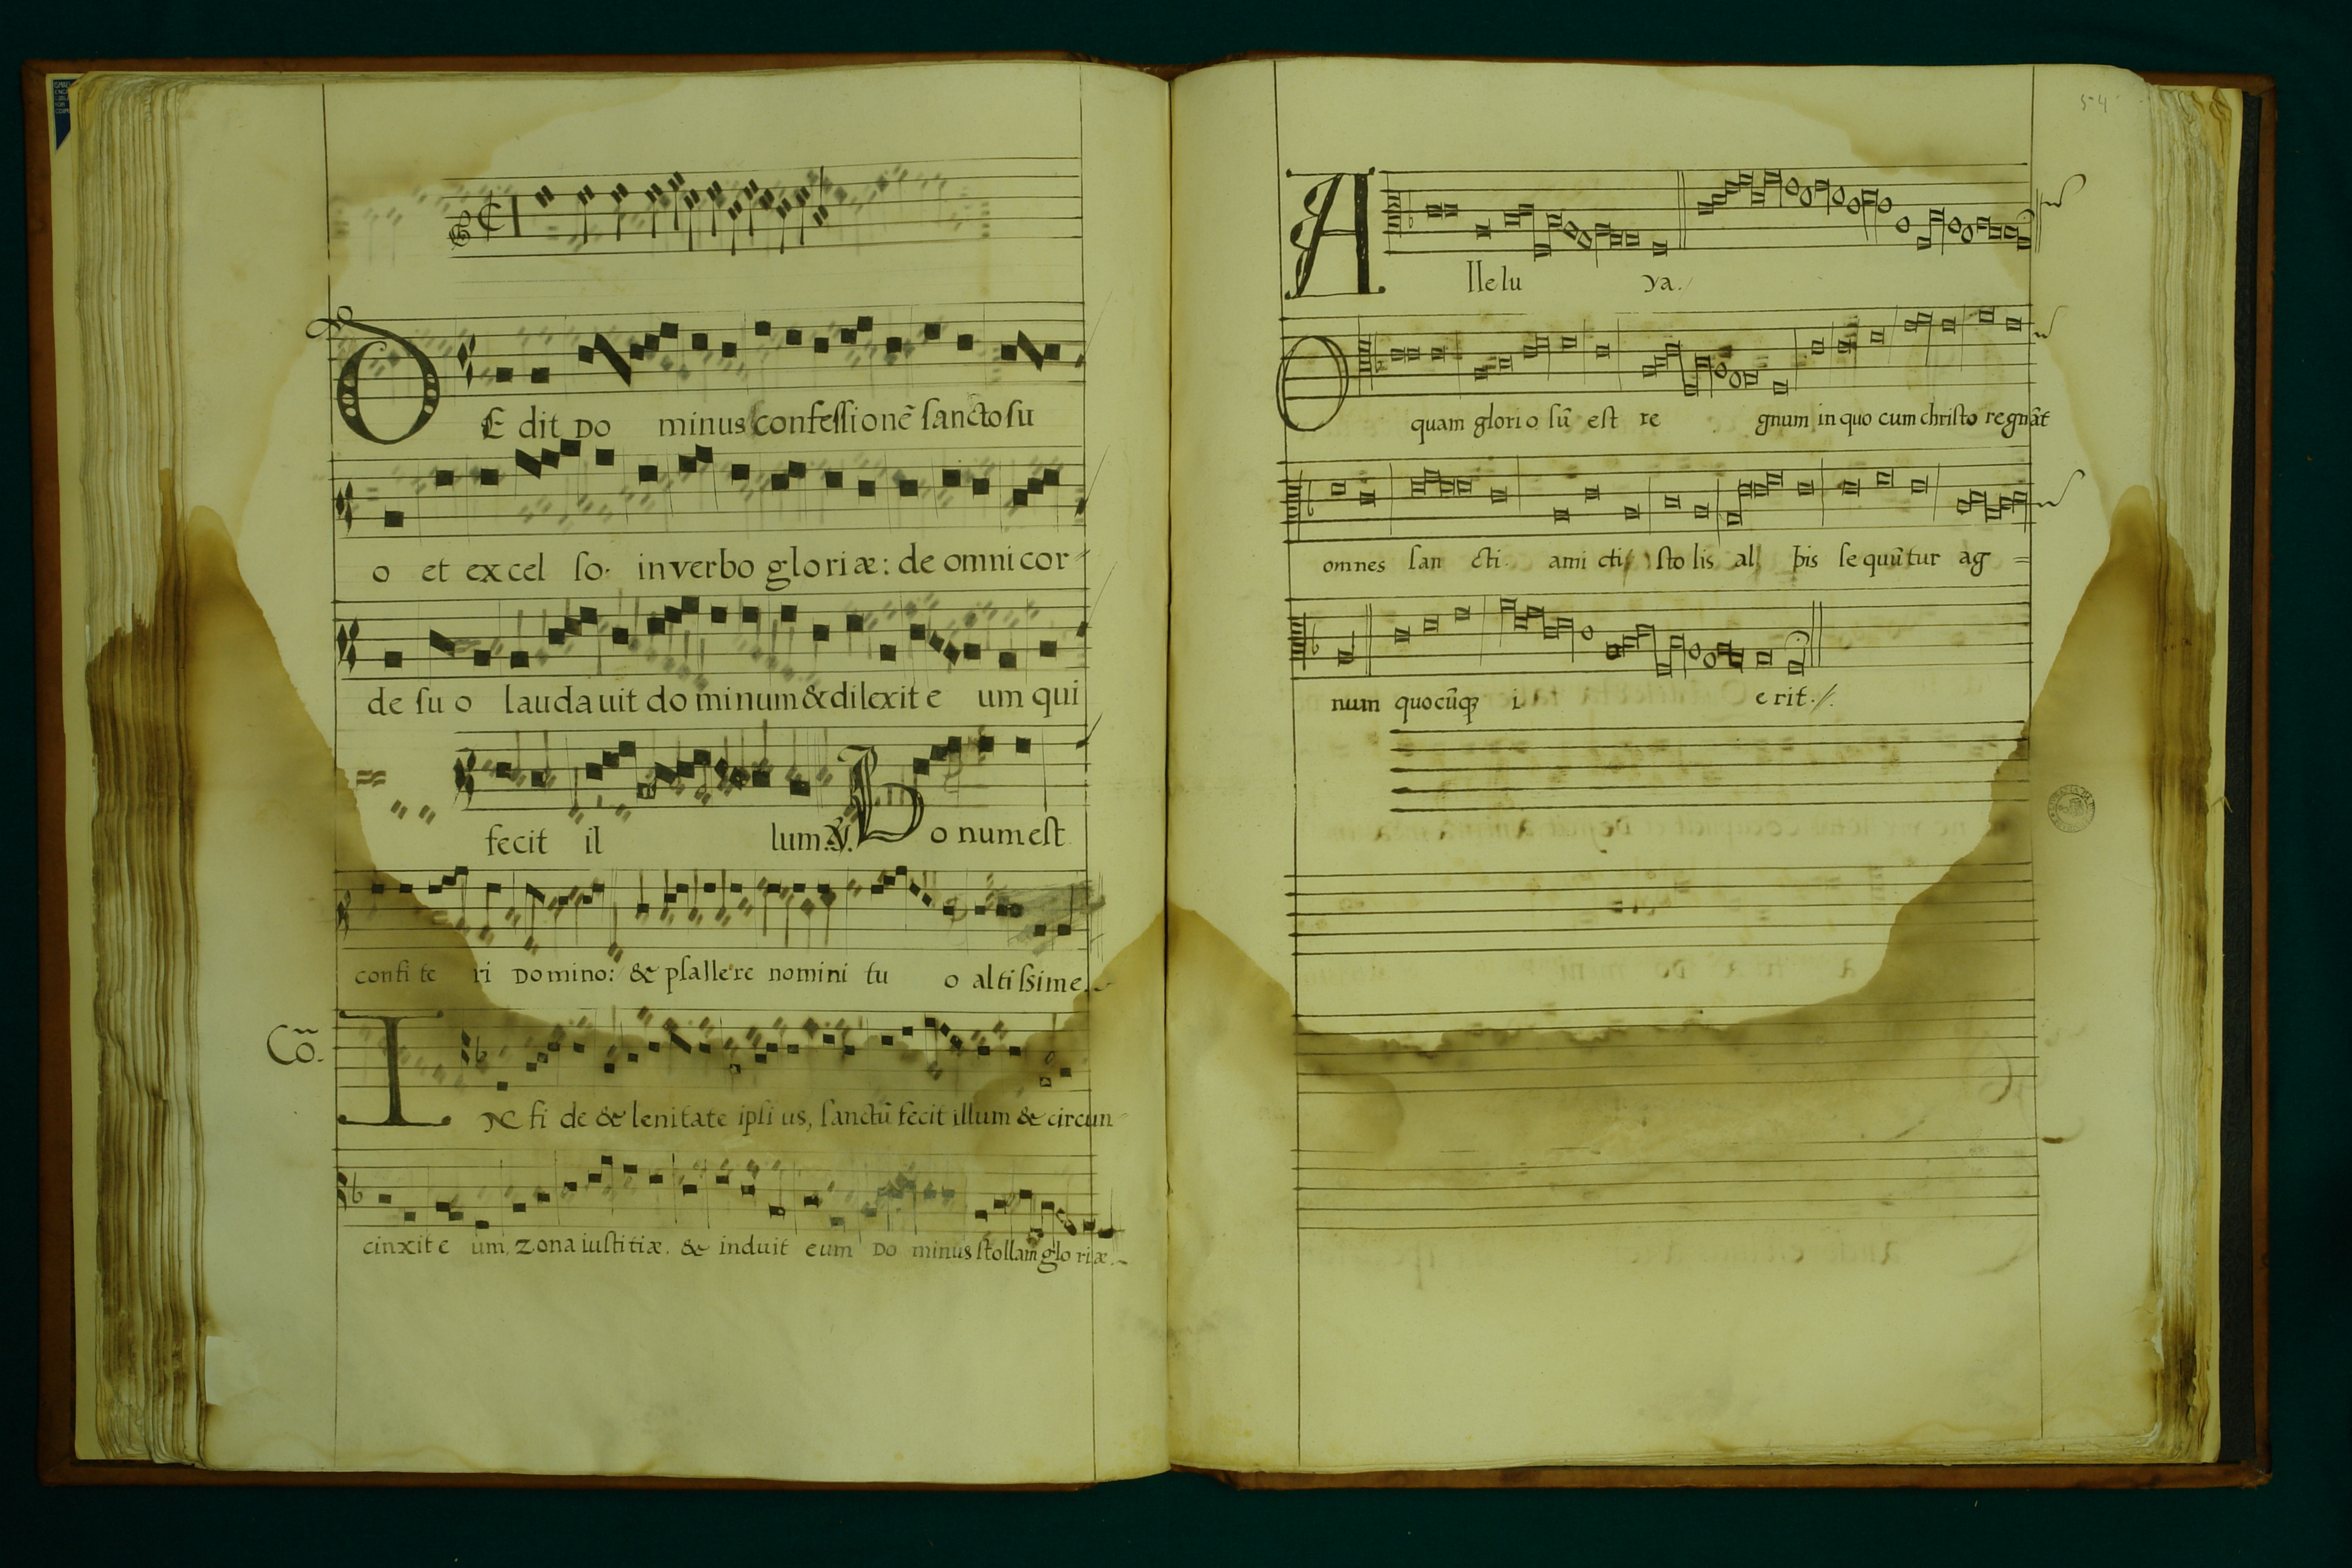 DEdit Do minus confessionē sancto su
o et excel so. in verbo gloriæ: de omni cor-
de su o laudauit do minum & dilexit e um qui
fecit il lum. ℣. Bo num est
confi te ri Domino: & psallere nomini tu o altissime.
Cō. IN fi de & lenitate ipsi us, sanctū fecit illum & circun-
cinxit e um, zona iustitiæ. & induit eum Do minus stollam glo riæ.
54
Allelu ya.
O quam glorio sū est re gnum in quo cum christo regnāt
omnes san cti. ami cti sto lis al bis sequūtur ag =
num quocūq3 i e rit.